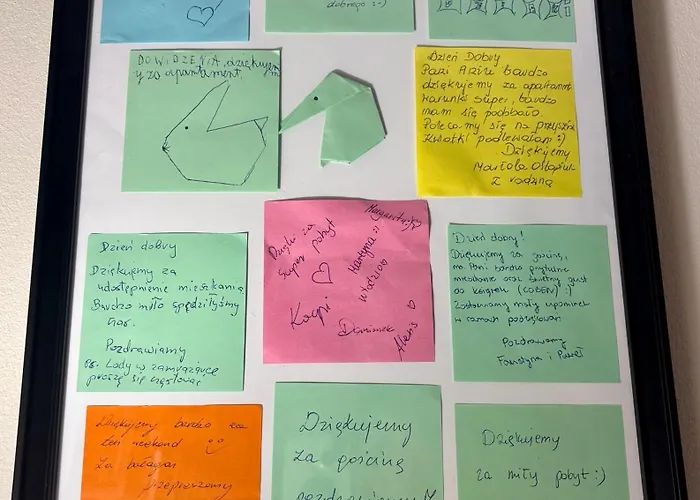 dobrego :)
DO WIDZENIA, dziękujem
y za apartament.
Dzień Dobry
Pani Aziu bardzo
dziękujemy za apartament
warunki super, bardzo
nam się podobało.
Polecamy się na przyszłość
Kwiatki podlewałam :)
Dziękujemy
Mariola
z rodziną
Dzień dobry
Dziękujemy za
udostępnienie mieszkania
Bardzo miło spędziłyśmy
czas.
Pozdrawiamy
Ps. Lody w zamrażarce
proszę się częstować
Dzięki za
super pobyt
Margaretka
Martyna :)
Władzio
Kacpi
Dominik
Alexis
Dzień dobry!
Dziękujemy za gościnę,
ma Pani bardzo przytulne
mieszkanie oraz świetny gust
do książek (COBEN) :)
Zostawiamy mały upominek
w ramach podziękowań
Pozdrawiamy
Faustyna i Paweł
Dziękujemy bardzo za
ten weekend
Za bałagan
przepraszamy
Dziękujemy
za gościnę
pozdrawiamy
Dziękujemy
za miły pobyt :)